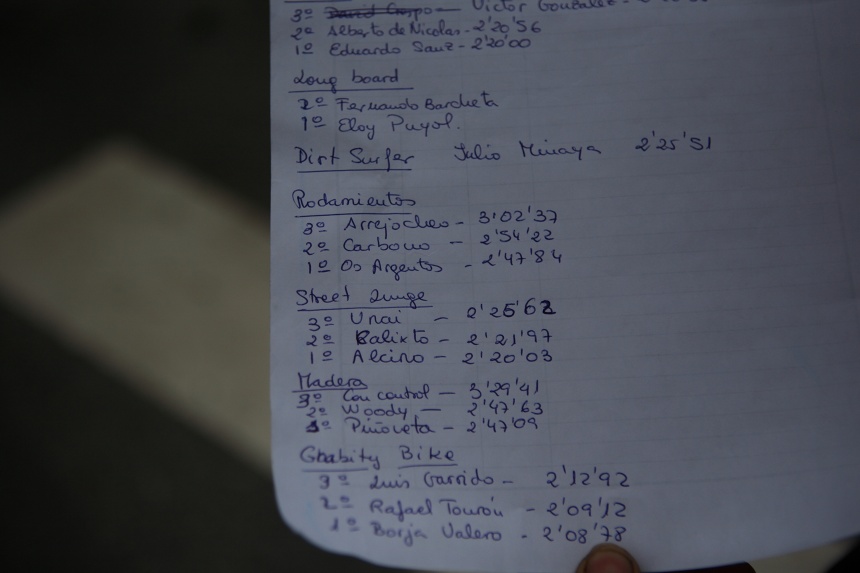 3º David Crespo — Victor Gonzalez -
2º Alberto de Nicolas - 2'20'56
1º Eduardo Sanz - 2'20'00
Long board
2º Fernando Barcheta
1º Eloy Puyol.
Dirt Surfer Julio Minaya 2'25'51
Rodamientos
3º Arrejocheo - 3'02'37
2º Carbono - 2'54'22
1º Os Argentos - 2'47'84
Street Luuge
3º Unai - 2'25'62
2º Calixto - 2'21'97
1º Alcino - 2'20'03
Madera
3º Con control - 3'29'41
2º Woody - 2'47'63
1º Piñoveta - 2'47'09
Grabity Bike
3º Luis Garrido - 2'12'92
2º Rafael Tourón - 2'09'12
1º Borja Valero - 2'08'78